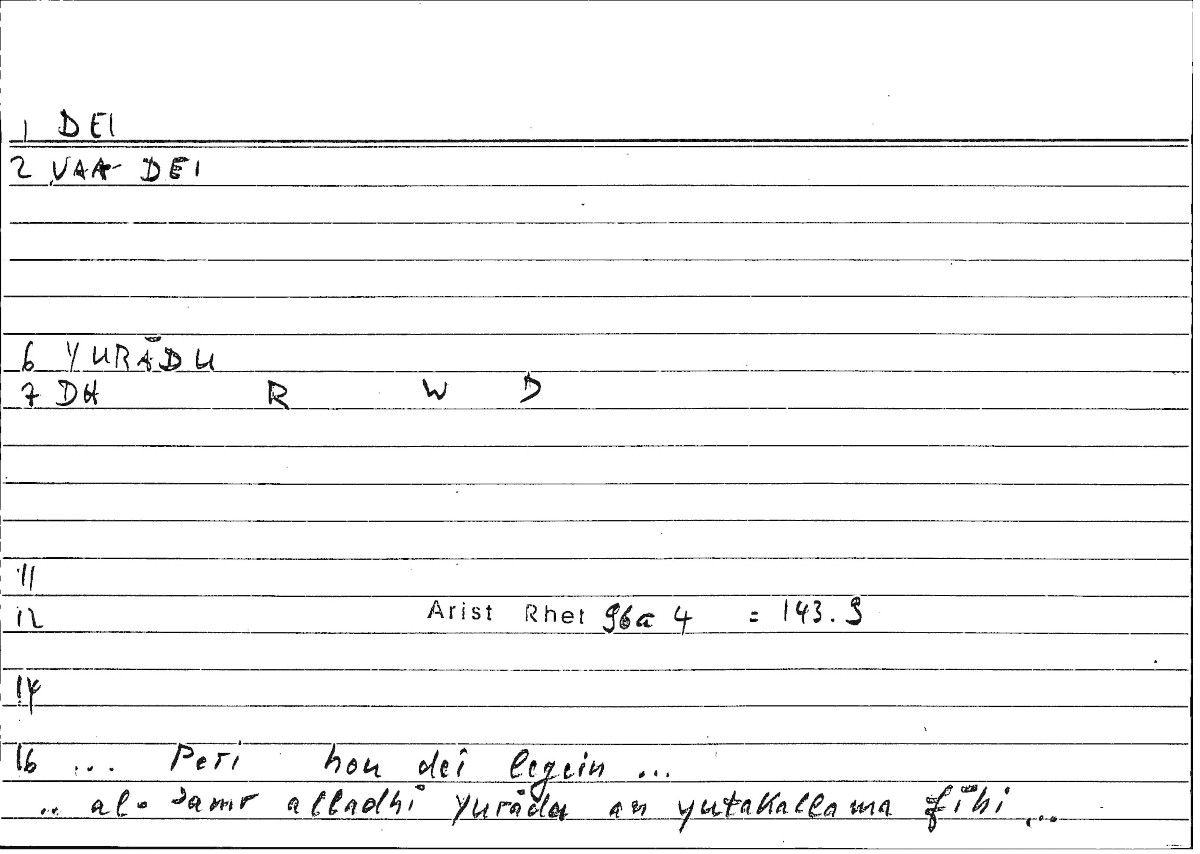 1 DEI
2 VAA- DEI
6 YURĀDU
7 DH R W D
11
12 Arist Rhet 96a 4 = 143.9
14
16 ... Peri hou dei legein ...
.. al-ʾamr alladhī yurādu an yutakallama fīhi ...